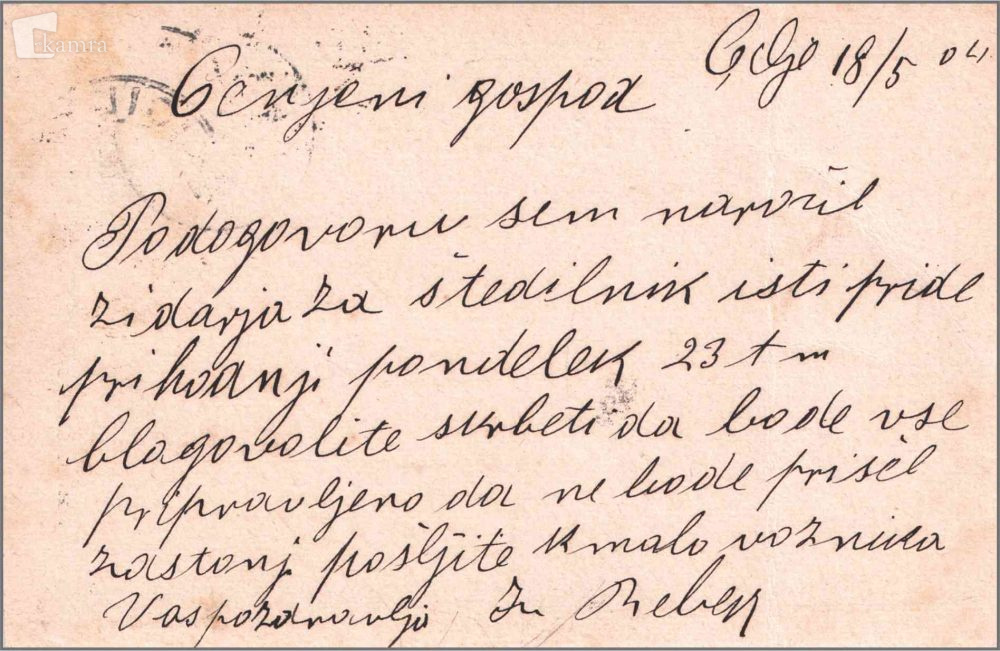 kamra
Celje 18/5 04
Cenjeni gospod
Podogovoru sem naročil
zidarja za štedilnik isti pride
prihodnji pondelek 23 t m
blagovolite skrbeti da bode vse
pripravljeno da ne bode prišel
zastonj pošljite kmalo voznika
Vas pozdravlja Iv Rebek